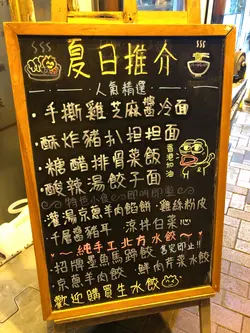 夏日推介
人氣精選
· 手撕雞芝麻醬冷面
· 酥炸豬扒担担面
· 糖醋排骨菜飯
· 酸辣湯餃子面
香港加油
~特色小食~即叫即製~
· 灌湯京蔥羊肉餡餅 · 雞絲粉皮
· 千層醬豬耳 · 涼拌白菜心
~純手工北方水餃~
· 招牌墨魚馬蹄餃 售完即止!!
· 京蔥羊肉餃 · 鮮肉芹菜水餃
歡迎購買生水餃